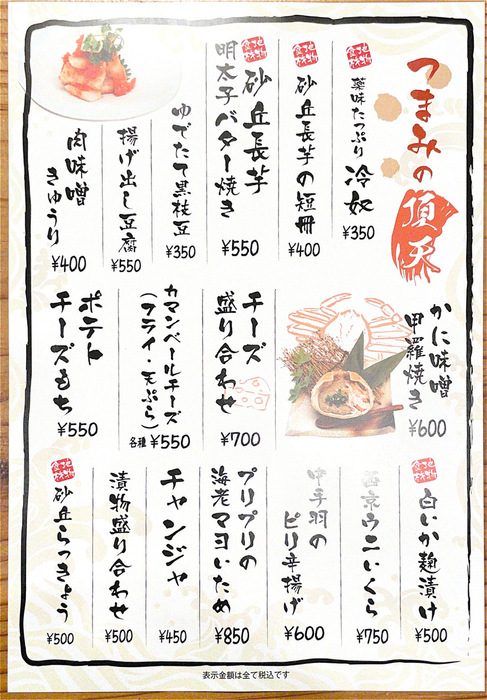 つまみの
頂天
地物
食材
薬味たっぷり
冷奴
¥350
地物
食材
砂丘長芋の短冊
¥400
地物
食材
砂丘長芋
明太子バター焼き
¥550
ゆでたて黒枝豆
¥350
揚げ出し豆腐
¥550
肉味噌
きゅうり
¥400
かに味噌
甲羅焼き
¥600
チーズ
盛り合わせ
¥700
カマンベールチーズ
(フライ・天ぷら)
各種 ¥550
ポテト
チーズもち
¥550
地物
食材
白いか麹漬け
¥500
西京ウニいくら
¥750
中手羽の
ピリ辛揚げ
¥600
プリプリの
海老マヨいため
¥850
チャンジャ
¥450
漬物盛り合わせ
¥500
地物
食材
砂丘らっきょう
¥500
表示金額は全て税込です